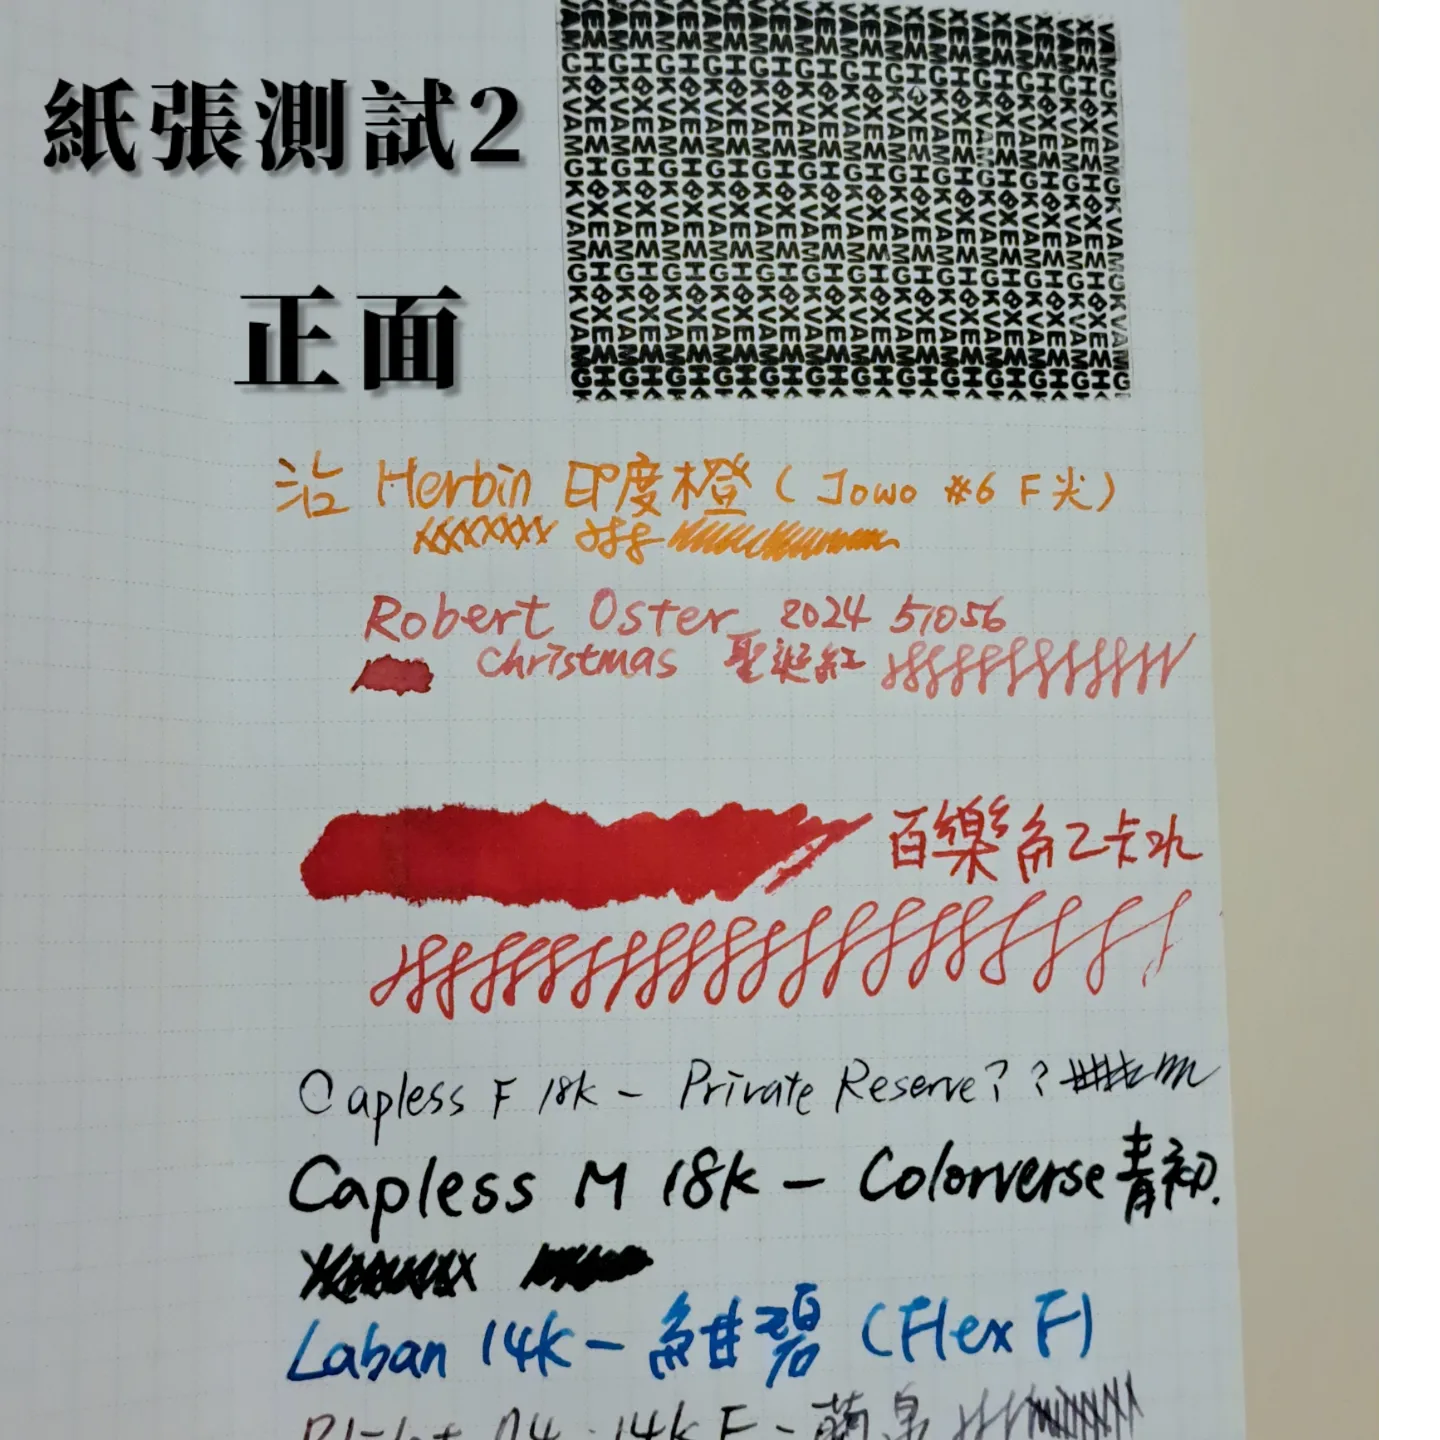 紙張測試2
正面
沾 Herbin 印度橙 ( Jowo #6 F尖 )
Robert Oster 2024 51056
Christmas 聖誕紅
百樂 紅卡水
Capless F 18k - Private Reserve? ?
Capless M 18k - Colorverse 青初.
Laban 14k - 紺碧 (Flex F)
14k F -